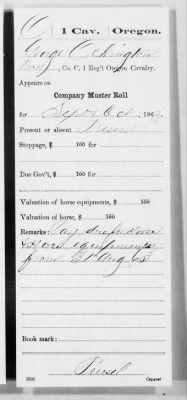 O | 1 Cav. | Oregon.
George O
Co. C, 1 Reg't Oregon Cavalry.
Appears on
Company Muster Roll
for Sept & Oct, 186
Present or absent
Stoppage, $ 100 for
Due Gov't, $ 100 for
Valuation of horse equipments, $ 100
Valuation of horse, $ 100
Remarks: Pay due for horse
& horse equipments
from 31 Aug 63
Book mark:
Copyist.